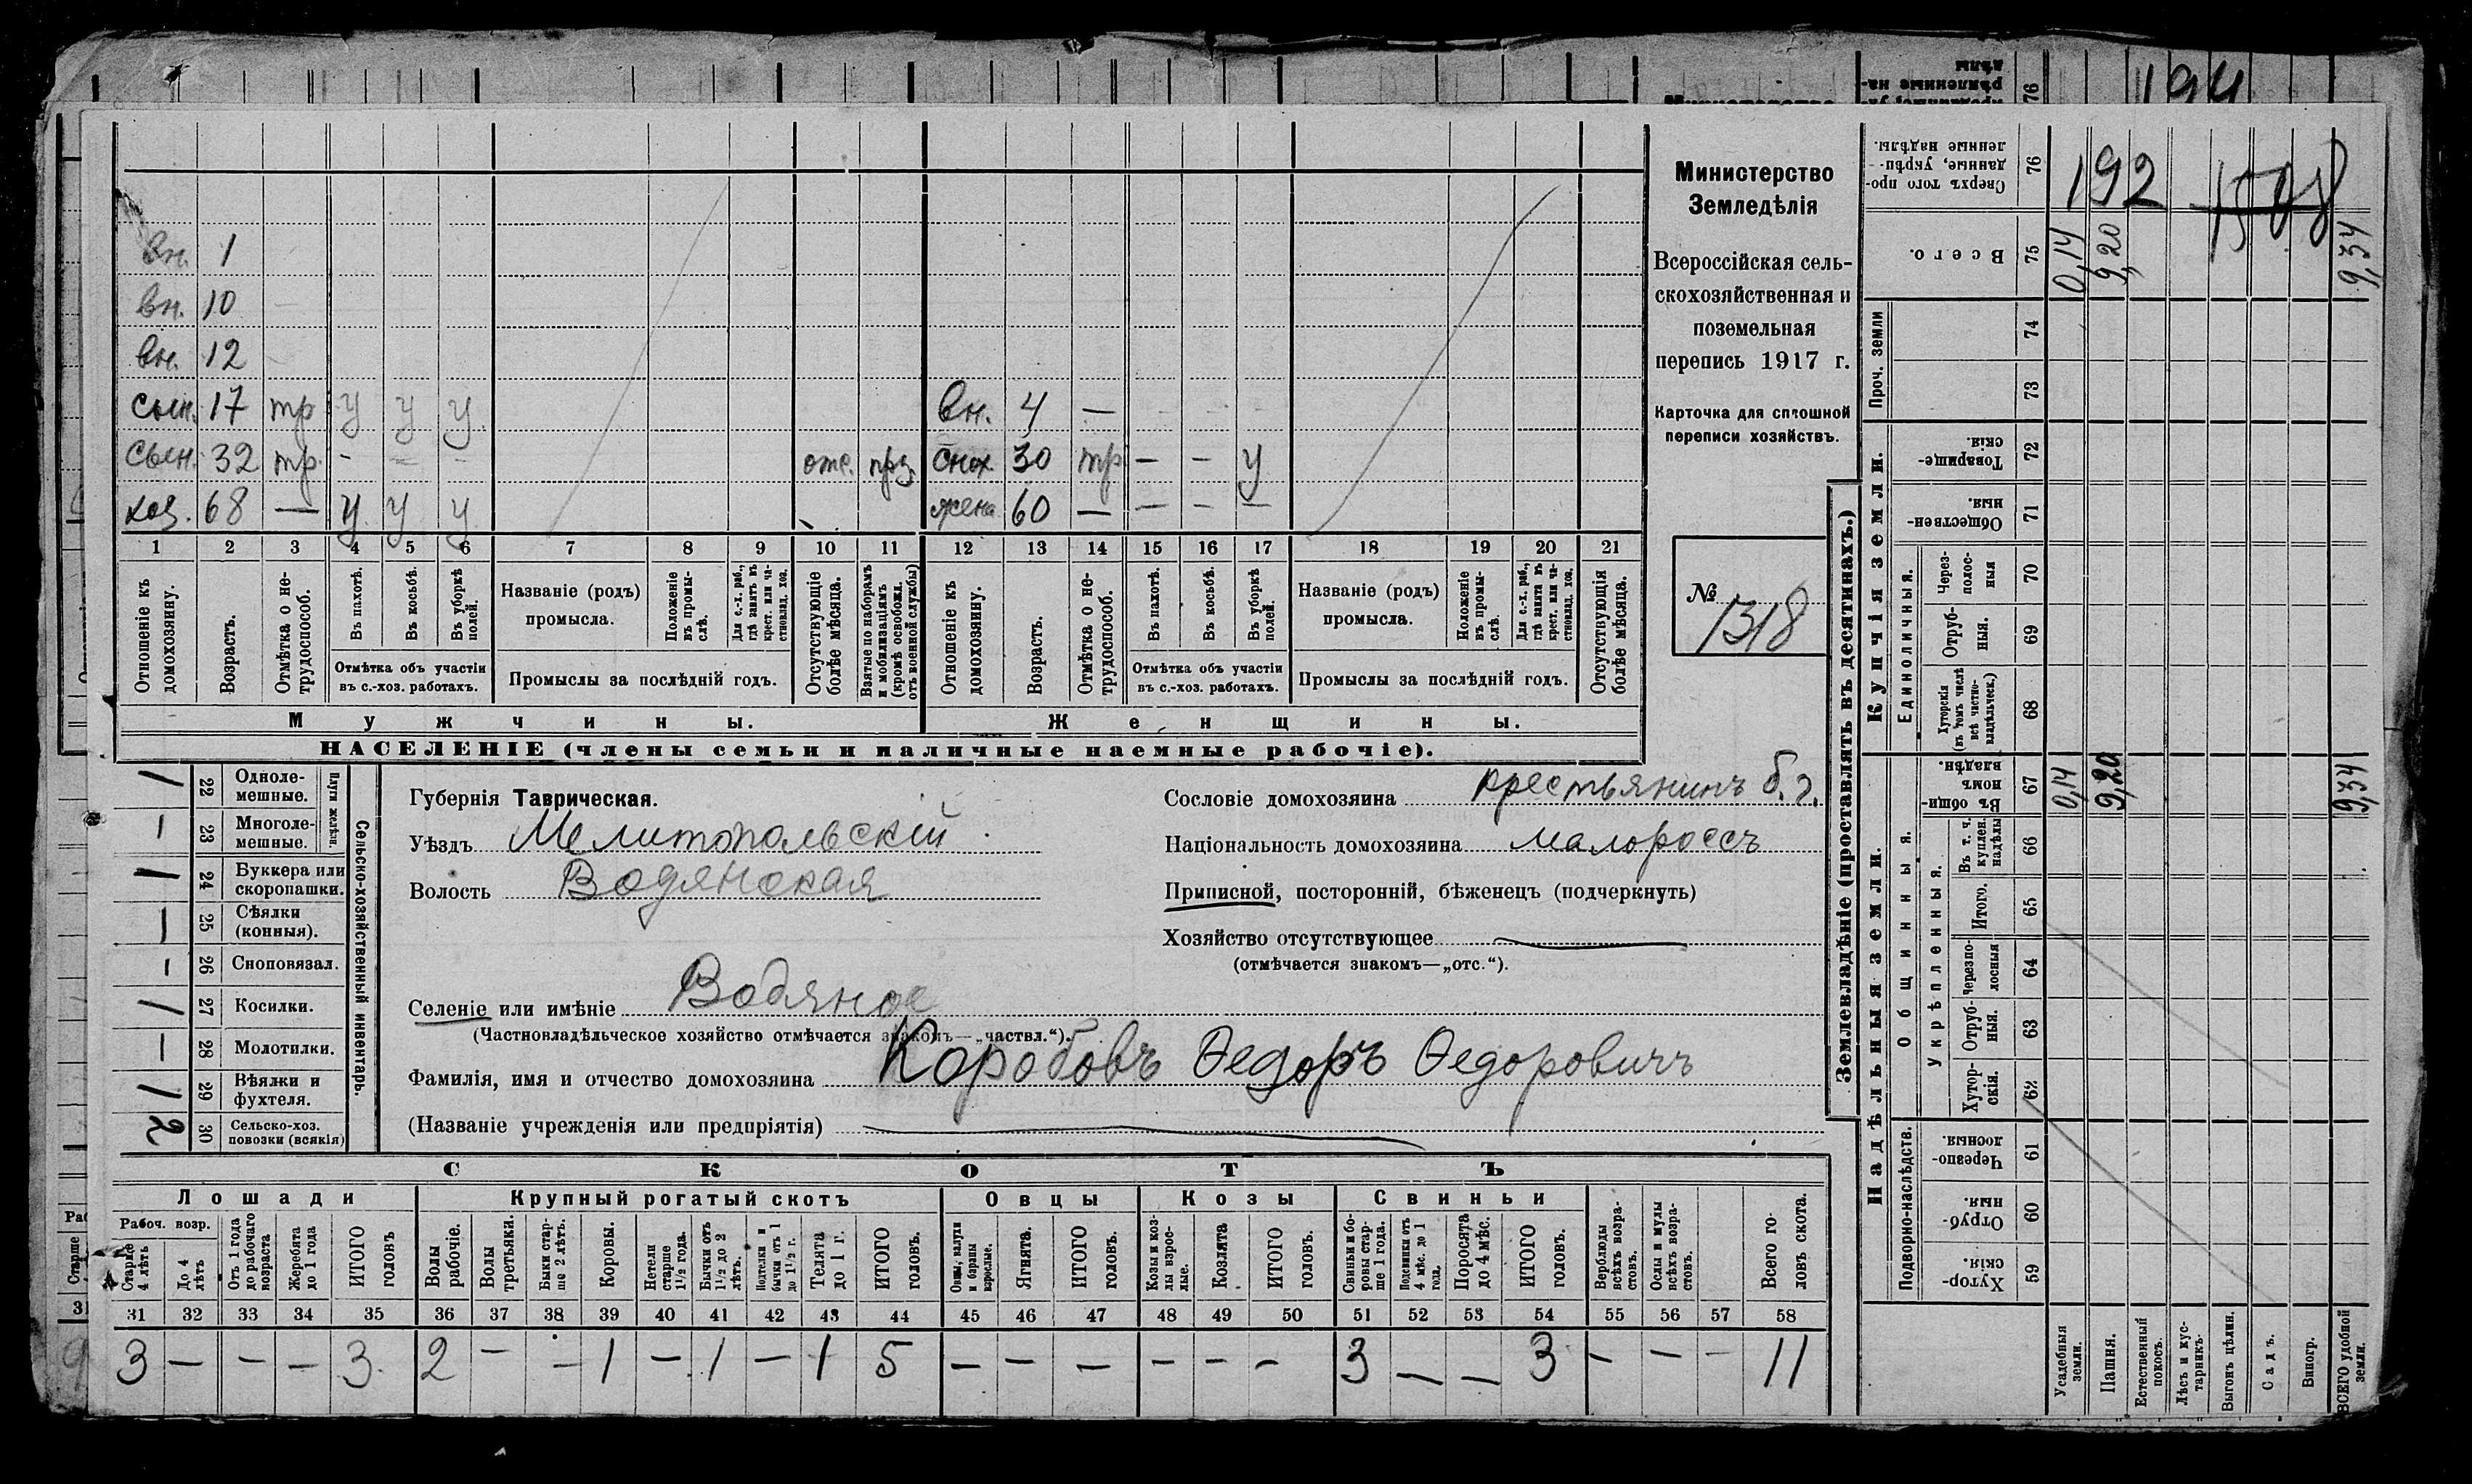 192 1508
Министерство
Земледѣлія
Всероссійская сель-
скохозяйственная и
поземельная
перепись 1917 г.
Карточка для сплошной
переписи хозяйствъ.
№ 1318
вн. 1
вн. 10 —
вн. 12 —
сын. 17 тр у у у вн. 4 —
сын. 32 тр. - - - отс. снох. 30 тр — — у
хоз. 68 — у у у жена 60 — — - —
1 2 3 4 5 6 7 8 9 10 11 12 13 14 15 16 17 18 19 20 21
Отношеніе къ домохозяину.
Возрастъ.
Отмѣтка о не-трудоспособ.
Въ пахотѣ.
Въ косьбѣ.
Въ уборкѣ полей.
Отмѣтка объ участіи
въ с.-хоз. работахъ.
Названіе (родъ)
промысла.
Положеніе въ промы-слѣ.
Для с.-х. раб., гдѣ занятъ въ крест. или ча-стновлад. хоз.
Промыслы за послѣдній годъ.
Отсутствующіе болѣе мѣсяца.
Взятые по наборамъ и мобилизаціямъ (кромѣ освобожд. отъ военной службы)
Отношеніе къ домохозяину.
Возрастъ.
Отмѣтка о не-трудоспособ.
Въ пахотѣ.
Въ косьбѣ.
Въ уборкѣ полей.
Отмѣтка объ участіи
въ с.-хоз. работахъ.
Названіе (родъ)
промысла.
Положеніе въ промы-слѣ.
Для с.-х. раб., гдѣ занята въ крест. или ча-стновлад. хоз.
Промыслы за послѣдній годъ.
Отсутствующія болѣе мѣсяца.
Мужчины. Женщины.
НАСЕЛЕНІЕ (члены семьи и наличные наемные рабочіе).
Сельско-хозяйственный инвентарь.
Плуги желѣзн.
1 22 Одноле-мешные.
— 23 Многоле-мешные.
1 24 Буккера или скоропашки.
— 25 Сѣялки (конныя).
- 26 Сноповязал.
1 27 Косилки.
— 28 Молотилки.
1 29 Вѣялки и фухтеля.
2 30 Сельско-хоз. повозки (всякія)
Губернія Таврическая.
Уѣздъ Мелитопольскій
Волость Водянская
Селеніе или имѣніе Водяное
(Частновладѣльческое хозяйство отмѣчается знакомъ—„частвл.“).
Фамилія, имя и отчество домохозяина Коробовъ Ѳедоръ Ѳедоровичъ
(Названіе учрежденія или предпріятія)
Сословіе домохозяина крестьянинъ б. г.
Національность домохозяина малороссъ
Приписной, посторонній, бѣженецъ (подчеркнуть)
Хозяйство отсутствующее
(отмѣчается знакомъ—„отс.“).
СКОТЪ
Лошади Крупный рогатый скотъ Овцы Козы Свиньи
Рабоч. возр.
Старше 4 лѣтъ
До 4 лѣтъ
Отъ 1 года до рабочаго возраста
Жеребята до 1 года
ИТОГО головъ
Волы рабочіе.
Волы третьяки.
Быки стар-ше 2 лѣтъ.
Коровы.
Нетели старше 1½ года.
Бычки отъ 1½ до 2 лѣтъ.
Подтелки и бычки отъ 1 до 1½ г.
Телята до 1 г.
ИТОГО головъ.
Овцы, валухи и бараны взрослые.
Ягнята.
ИТОГО головъ.
Козы и коз-лы взрос-лые.
Козлята
ИТОГО головъ.
Свиньи и бо-ровы стар-ше 1 года.
Подсвинки отъ 4 мѣс. до 1 года.
Поросята до 4 мѣс.
ИТОГО головъ.
Верблюды всѣхъ возра-стовъ.
Ослы и мулы всѣхъ возра-стовъ.
Всего го-ловъ скота.
31 32 33 34 35 36 37 38 39 40 41 42 43 44 45 46 47 48 49 50 51 52 53 54 55 56 57 58
3 — — — 3 2 — — 1 — 1 — 1 5 — — — — — — 3 — — 3 — — — 11
Землевладѣніе (проставлять въ десятинахъ.)
Надѣльныя земли. Купчія земли.
Подворно-наслѣдств.
Общинныя.
Укрѣпленныя.
Единоличныя.
Проч. земли
Сверхъ того про-данные, укрѣп-ленные надѣлы. 76
Всего. 75 0,14 9,20 9,34
74
73
Товарище-скія. 72
Обществен-ныя. 71
Через-полос-ныя 70
Отруб-ныя. 69
Хуторскія (въ томъ числѣ всѣ частно-владѣльческ.) 68
Въ общин-номъ владѣн. 67 0,14 9,20 9,34
Въ т. ч. куплен. надѣлы 66
Итого. 65
Черезпо-лосныя 64
Отруб-ныя. 63
Хутор-скія. 62
Черезпо-лосныя. 61
Отруб-ныя. 60
Хутор-скія. 59
Усадебныя земли.
Пашня.
Естественный покосъ.
Лѣсъ и кус-тарникъ.
Выгонъ цѣлин.
Садъ.
Виногр.
ВСЕГО удобной земли.